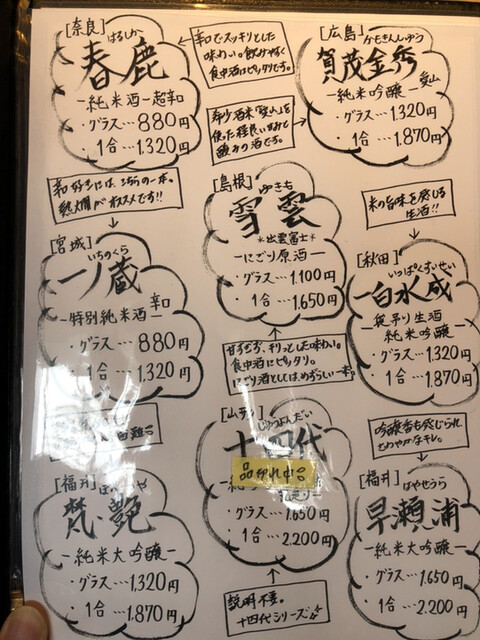 [奈良]
はるしか
春鹿
ー純米酒ー超辛口
・グラス…880円
・1合…1.320円
辛口でスッキリとした
味わい。飲みやすく
食中酒にピッタリです。
[広島]
かもきんしゅう
賀茂金秀
ー純米吟醸ー
・グラス…1.320円
・1合…1.870円
[島根]
雪雲
*出雲富士*
ーにごり原酒ー
・グラス…1.100円
・1合…1.650円
辛口好きには、こちらの一本。
熱燗がオススメです!!
[宮城]
いちのくら
一ノ蔵
ー特別純米酒ー辛口
・グラス…880円
・1合…1.320円
米の旨味を感じる
生酒!!
[秋田]
いっぱくすいせい
一白水成
ー袋吊り生酒
純米吟醸ー
・グラス…1.320円
・1合…1.870円
甘すぎず、キリッとした味わい。
食中酒にピッタリ。
にごり酒としては、めずらしい一本。
[福井]
梵 艶
ー純米大吟醸ー
・グラス…1.320円
・1合…1.870円
じゅうよんだい
十四代
品切れ中。
・グラス…1.650円
・1合…2.200円
説明不要。
十四代シリーズ
吟醸香も感じられ
さわやかなキレ。
[福井]
はやせうら
早瀬浦
ー純米大吟醸ー
・グラス…1.650円
・1合…2.200円